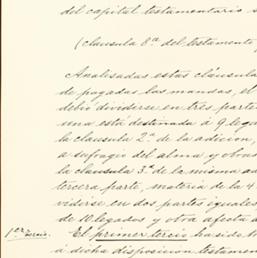 del capital testamentario s
(clausula 8ª del testamento
Analisadas estas cláusula
de pagadas las mandas, el
debio dividirse en tres parte
una está destinada á 9 lega
la clausula 2ª de la adicion,
a sufragio del alma y obras
la clausula 3ª de la misma ad
tercera parte, materia de la 4
vidirse en dos partes iguales
de 10 legados y otra afecta a
1er tercio. El primer tercio ha sido t
á dicha disposicion testamen